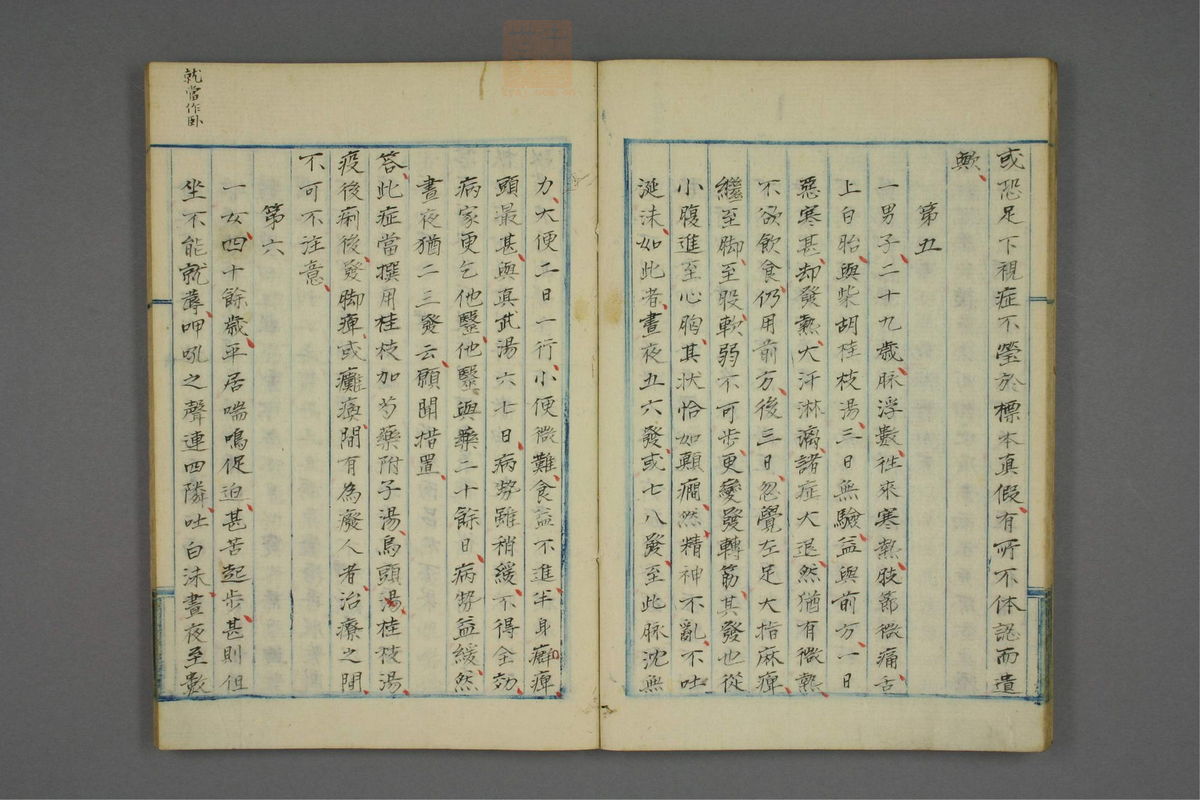 或恐足下視症不瑩於標本真假有所不体認而遺
歟
第五
一男子二十九歳脉浮數徃來寒熱肢節微痛舌
上白胎與柴胡桂枝湯三日無驗益與前方一日
惡寒甚却發熱大汗淋漓諸症大退然猶有微熱
不欲飲食仍用前方後三日忽覺左足大指麻痺
繼至脚至股軟弱不可步更變發轉筋其發也從
小腹進至心胸其状恰如顛癇然精神不亂不吐
涎沫如此者晝夜五六發或七八發至此脉沈無
力大便二日一行小便微難食益不進半身癖痺
頭最甚與真武湯六七日病勢雖稍緩不得全効
病家更乞他醫他醫與藥二十餘日病勢益緩然
晝夜猶二三發云願聞措置
答此症當撰用桂枝加芍藥附子湯烏頭湯桂枝湯
疫後痢後發脚痺或癱瘓間有為癈人者治療之間
不可不注意
第六
一女四十餘歳平居喘鳴促迫甚苦起歩甚則但
坐不能就蓐呷吼之聲連四隣吐白沫晝夜至數
就當作卧